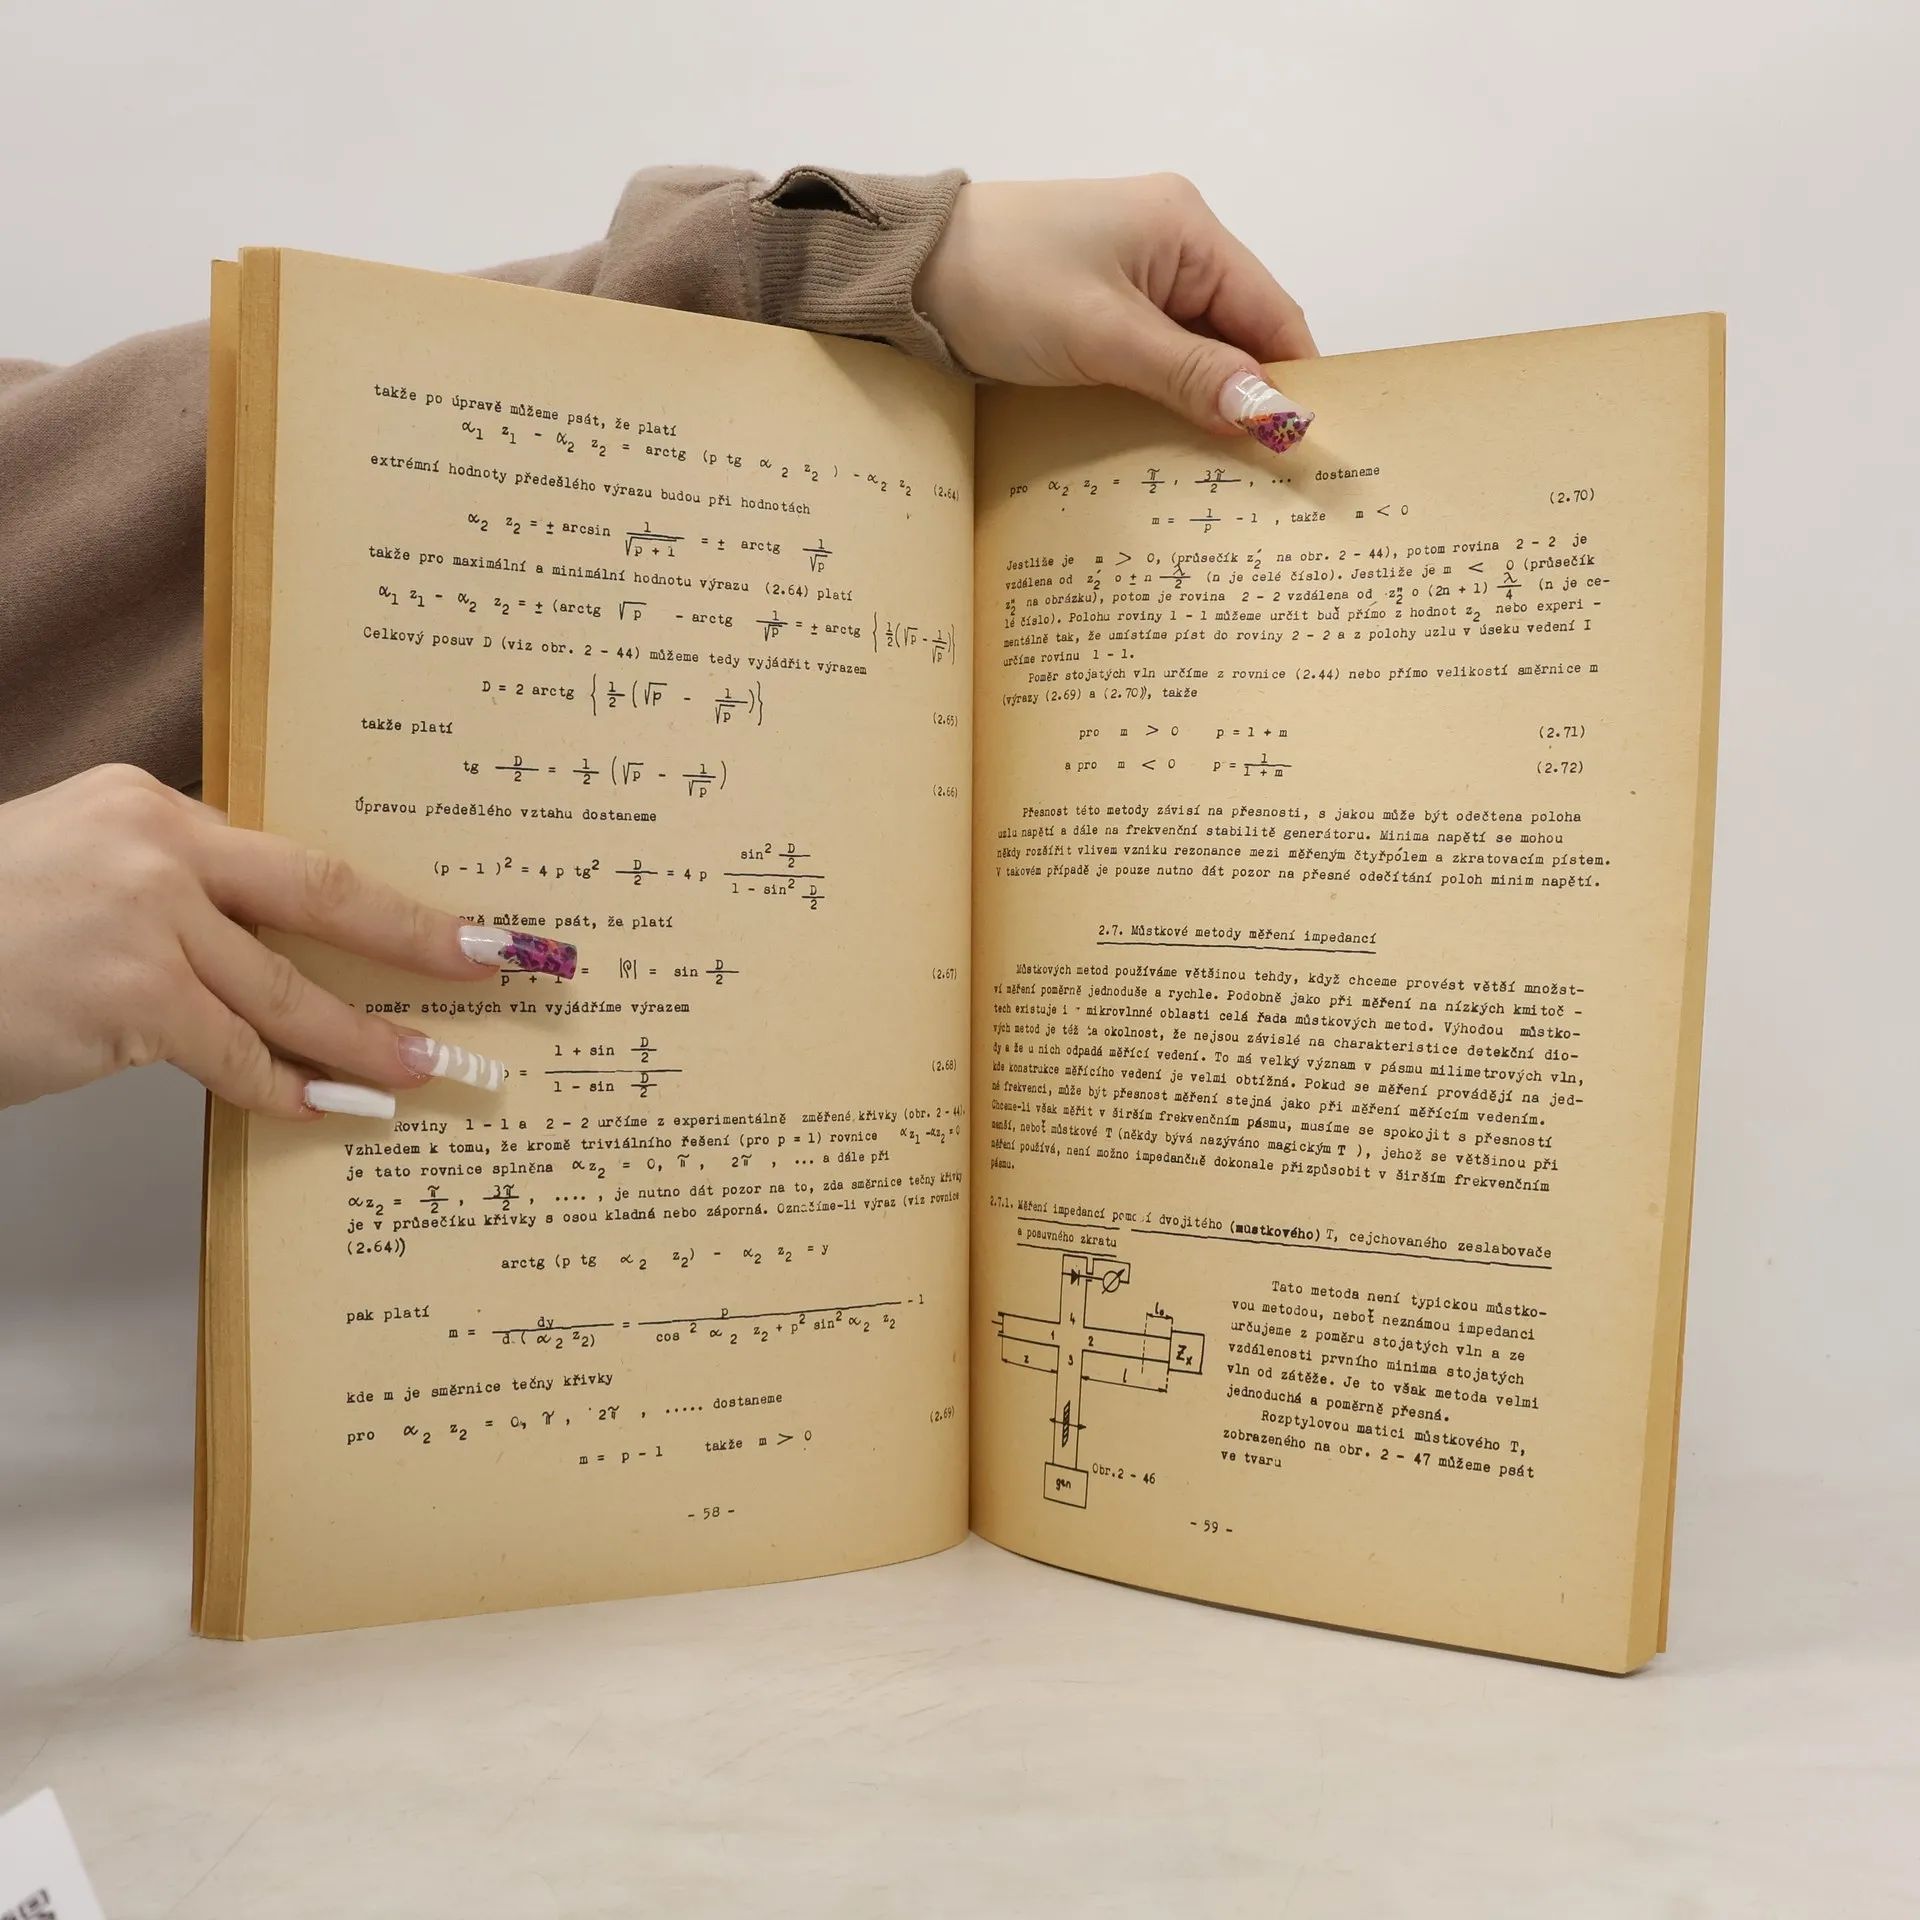 takže po úpravě můžeme psát, že platí
α₁ z₁ - α₂ z₂ = arctg (p tg α₂ z₂ ) - α₂ z₂ (2.64)
extrémní hodnoty předešlého výrazu budou při hodnotách
α₂ z₂ = ± arcsin 1/√(p + 1) = ± arctg 1/√p
takže pro maximální a minimální hodnotu výrazu (2.64) platí
α₁ z₁ - α₂ z₂ = ± (arctg √p - arctg 1/√p = ± arctg { 1/2 (√p - 1/√p)}
Celkový posuv D (viz obr. 2 - 44) můžeme tedy vyjádřit výrazem
D = 2 arctg { 1/2 (√p - 1/√p)} (2.65)
takže platí
tg D/2 = 1/2 (√p - 1/√p) (2.66)
Úpravou předešlého vztahu dostaneme
(p - 1 )² = 4 p tg² D/2 = 4 p sin² D/2 / 1 - sin² D/2
můžeme psát, že platí
p + 1 = |ρ| = sin D/2 (2.67)
poměr stojatých vln vyjádříme výrazem
p = 1 + sin D/2 / 1 - sin D/2 (2.68)
Roviny 1 - 1 a 2 - 2 určíme z experimentálně změřené křivky (obr. 2 - 44).
Vzhledem k tomu, že kromě triviálního řešení (pro p = 1) rovnice αz₁ - αz₂ = 0
je tato rovnice splněna αz₂ = 0, π, 2π , ... a dále při
αz₂ = π/2 , 3π/2 , .... , je nutno dát pozor na to, zda směrnice tečny křivky
je v průsečíku křivky s osou kladná nebo záporná. Označíme-li výraz (viz rovnice
(2.64))
arctg (p tg α₂ z₂) - α₂ z₂ = y
pak platí
m = dy / d ( α₂ z₂) = p / cos² α₂ z₂ + p² sin² α₂ z₂ - 1
kde m je směrnice tečny křivky
pro α₂ z₂ = 0, π, 2π , ..... dostaneme
m = p - 1 takže m > 0 (2.69)
- 58 -
pro α₂ z₂ = π/2 , 3π/2 , ... dostaneme
m = 1/p - 1 , takže m < 0 (2.70)
Jestliže je m > 0, (průsečík z₂′ na obr. 2 - 44), potom rovina 2 - 2 je
vzdálena od z₂′ o ± n λ/2 (n je celé číslo). Jestliže je m < 0 (průsečík
z₂″ na obrázku), potom je rovina 2 - 2 vzdálena od z₂″ o (2n + 1) λ/4 (n je ce-
lé číslo). Polohu roviny 1 - 1 můžeme určit buď přímo z hodnot z₂ nebo experi -
mentálně tak, že umístíme píst do roviny 2 - 2 a z polohy uzlu v úseku vedení I
určíme rovinu 1 - 1.
Poměr stojatých vln určíme z rovnice (2.44) nebo přímo velikostí směrnice m
(výrazy (2.69) a (2.70)), takže
pro m > 0 p = 1 + m (2.71)
a pro m < 0 p = 1/1 + m (2.72)
Přesnost této metody závisí na přesnosti, s jakou může být odečtena poloha
uzlu napětí a dále na frekvenční stabilitě generátoru. Minima napětí se mohou
někdy rozšířit vlivem vzniku rezonance mezi měřeným čtyřpólem a zkratovacím pístem.
V takovém případě je pouze nutno dát pozor na přesné odečítání poloh minim napětí.
2.7. Můstkové metody měření impedancí
Můstkových metod používáme většinou tehdy, když chceme provést větší množst-
ví měření poměrně jednoduše a rychle. Podobně jako při měření na nízkých kmitoč -
tech existuje i mikrovlnné oblasti celá řada můstkových metod. Výhodou můstko-
vých metod je též ta okolnost, že nejsou závislé na charakteristice detekční dio-
dy a že u nich odpadá měřící vedení. To má velký význam v pásmu milimetrových vln,
kde konstrukce měřícího vedení je velmi obtížná. Pokud se měření provádějí na jed-
né frekvenci, může být přesnost měření stejná jako při měření měřícím vedením.
Chceme-li však měřit v širším frekvenčním pásmu, musíme se spokojit s přesností
menší, neboť můstkové T (někdy bývá nazýváno magickým T ), jehož se většinou při
měření používá, není možno impedančně dokonale přizpůsobit v širším frekvenčním
pásmu.
2.7.1. Měření impedancí pomocí dvojitého (mustkového) T, cejchovaného zeslabovače
a posuvného zkratu
l₀
4
1 2 3
Zₓ
z l
gen
Obr.2 - 46
Tato metoda není typickou můstko-
vou metodou, neboť neznámou impedanci
určujeme z poměru stojatých vln a ze
vzdálenosti prvního minima stojatých
vln od zátěže. Je to však metoda velmi
jednoduchá a poměrně přesná.
Rozptylovou matici můstkového T,
zobrazeného na obr. 2 - 47 můžeme psát
ve tvaru
- 59 -